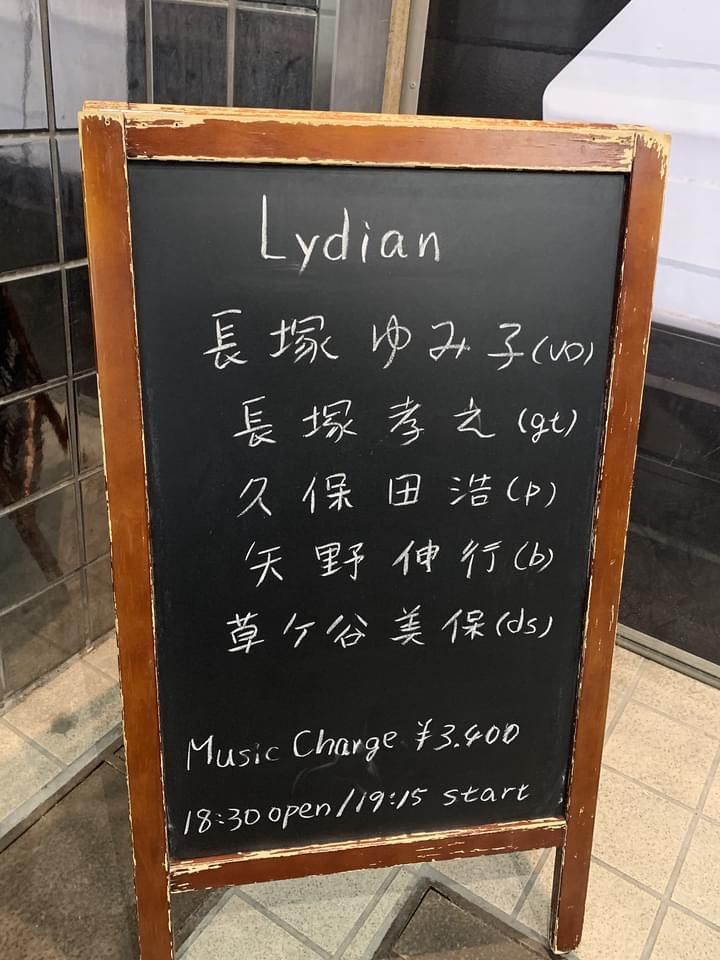 Lydian
長塚ゆみ子(vo)
長塚孝之(gt)
久保田浩(p)
矢野伸行(b)
草ケ谷美保(ds)
Music Charge ¥3.400
18:30 open/19:15 start